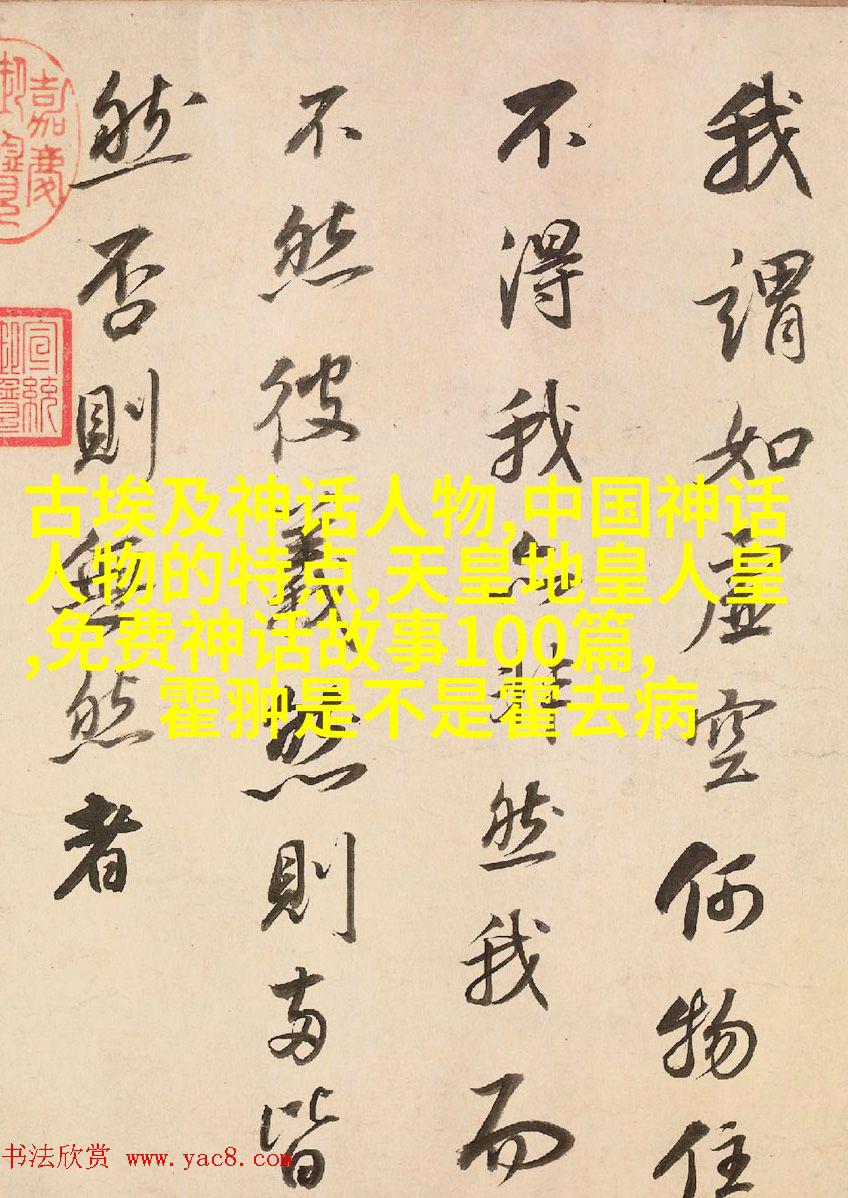 我謂如虛空何物住
不得我非然我而
不然彼義然則兩皆
然否則無然者
嘉慶
御覽
宣統
古埃及神话人物,中国神话
人物的特点,天皇地皇人皇
,免费神话故事100篇,
霍翀是不是霍去病
书法欣赏 www.yac8.com